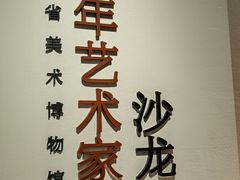 省美术博物馆
年艺术家
沙龙